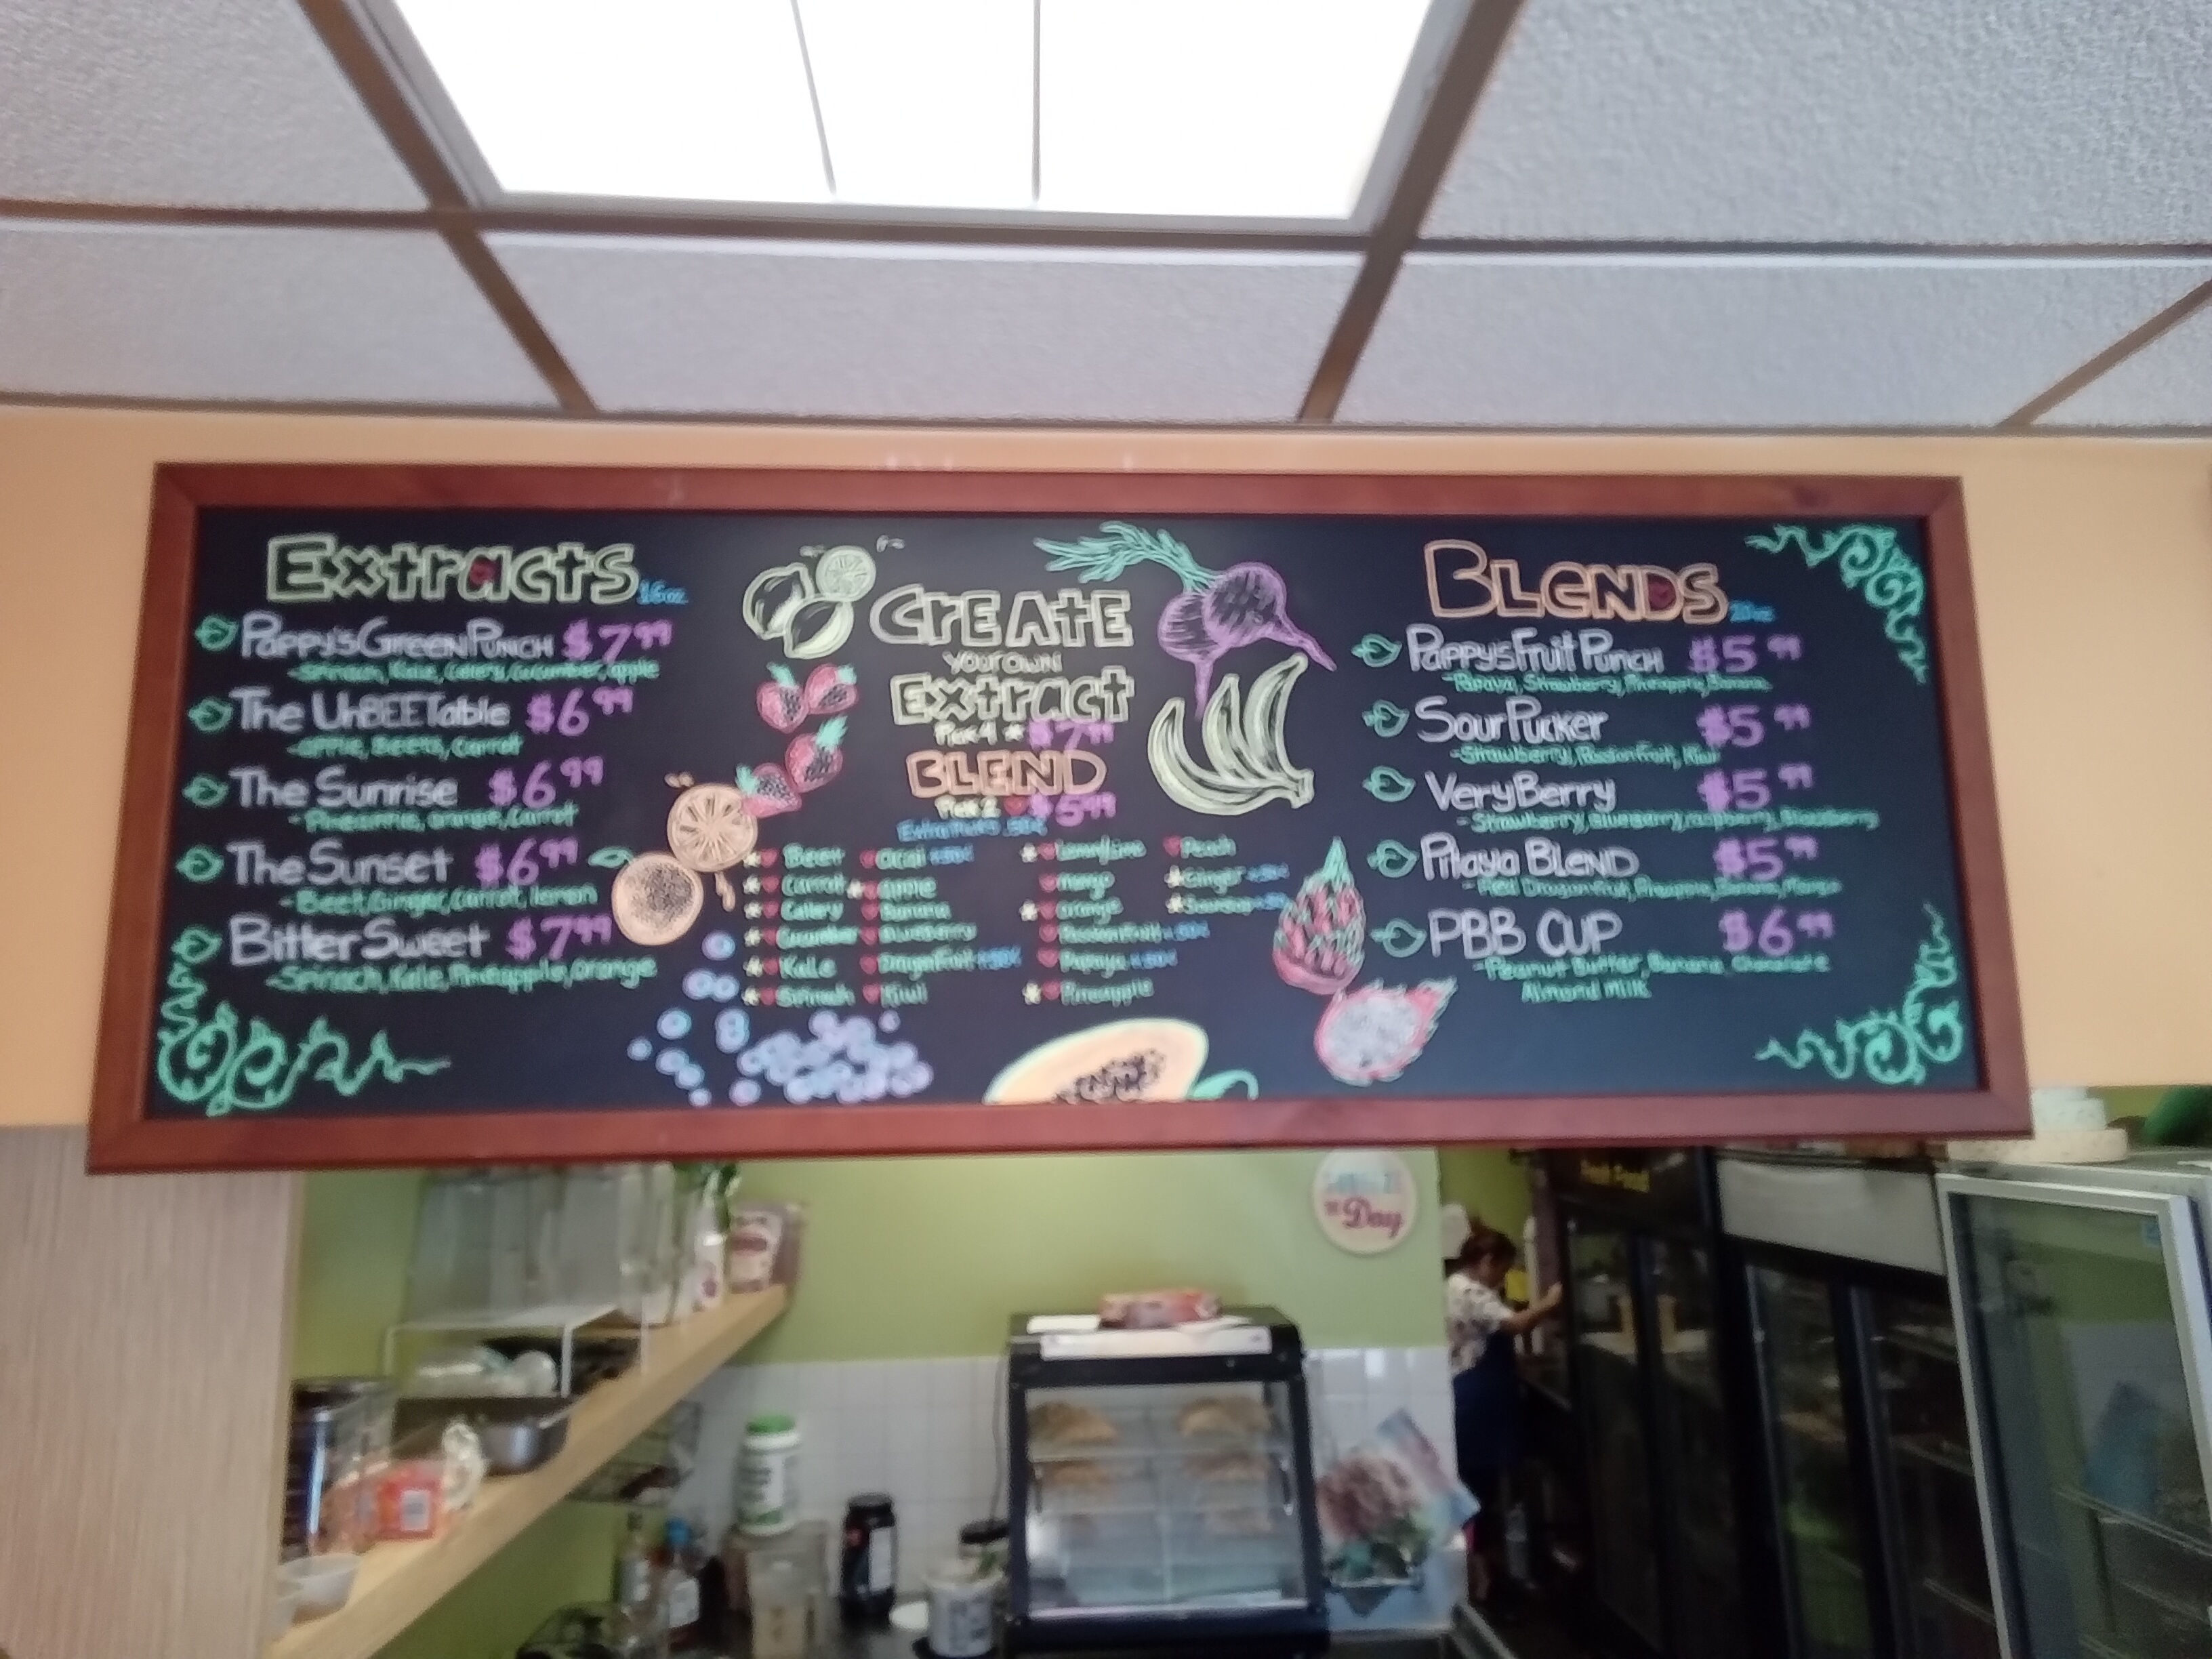 Extracts 16oz
Pappy's Green Punch $7.99
-Spinach, Kale, Celery, Cucumber, apple
The UnBEETable $6.99
-apple, Beets, Carrot
The Sunrise $6.99
-Pineapple, orange, Carrot
The Sunset $6.99
-Beet, Ginger, Carrot, lemon
Bitter Sweet $7.99
-Spinach, Kale, Pineapple, orange
CREATE
your own
Extract
Pick 4 $7.99
BLEND
Pick 2 $5.99
Beet
Carrot
Celery
Cucumber
Kale
Spinach
Acai
apple
Banana
Blueberry
DragonFruit
Kiwi
lemon/lime
mango
orange
Passionfruit
Papaya
Pineapple
Peach
Ginger
BLENDS
Pappy's Fruit Punch $5.99
-Papaya, Strawberry, Pineapple, Banana
Sour Pucker $5.99
-Strawberry, Passionfruit, Kiwi
Very Berry $5.99
-Strawberry, Blueberry, raspberry, Blackberry
Pitaya BLEND $5.99
-Red Dragonfruit, Pineapple, Banana, Mango
PBB CUP $6.99
-Peanut Butter, Banana, Chocolate
Almond Milk
Day